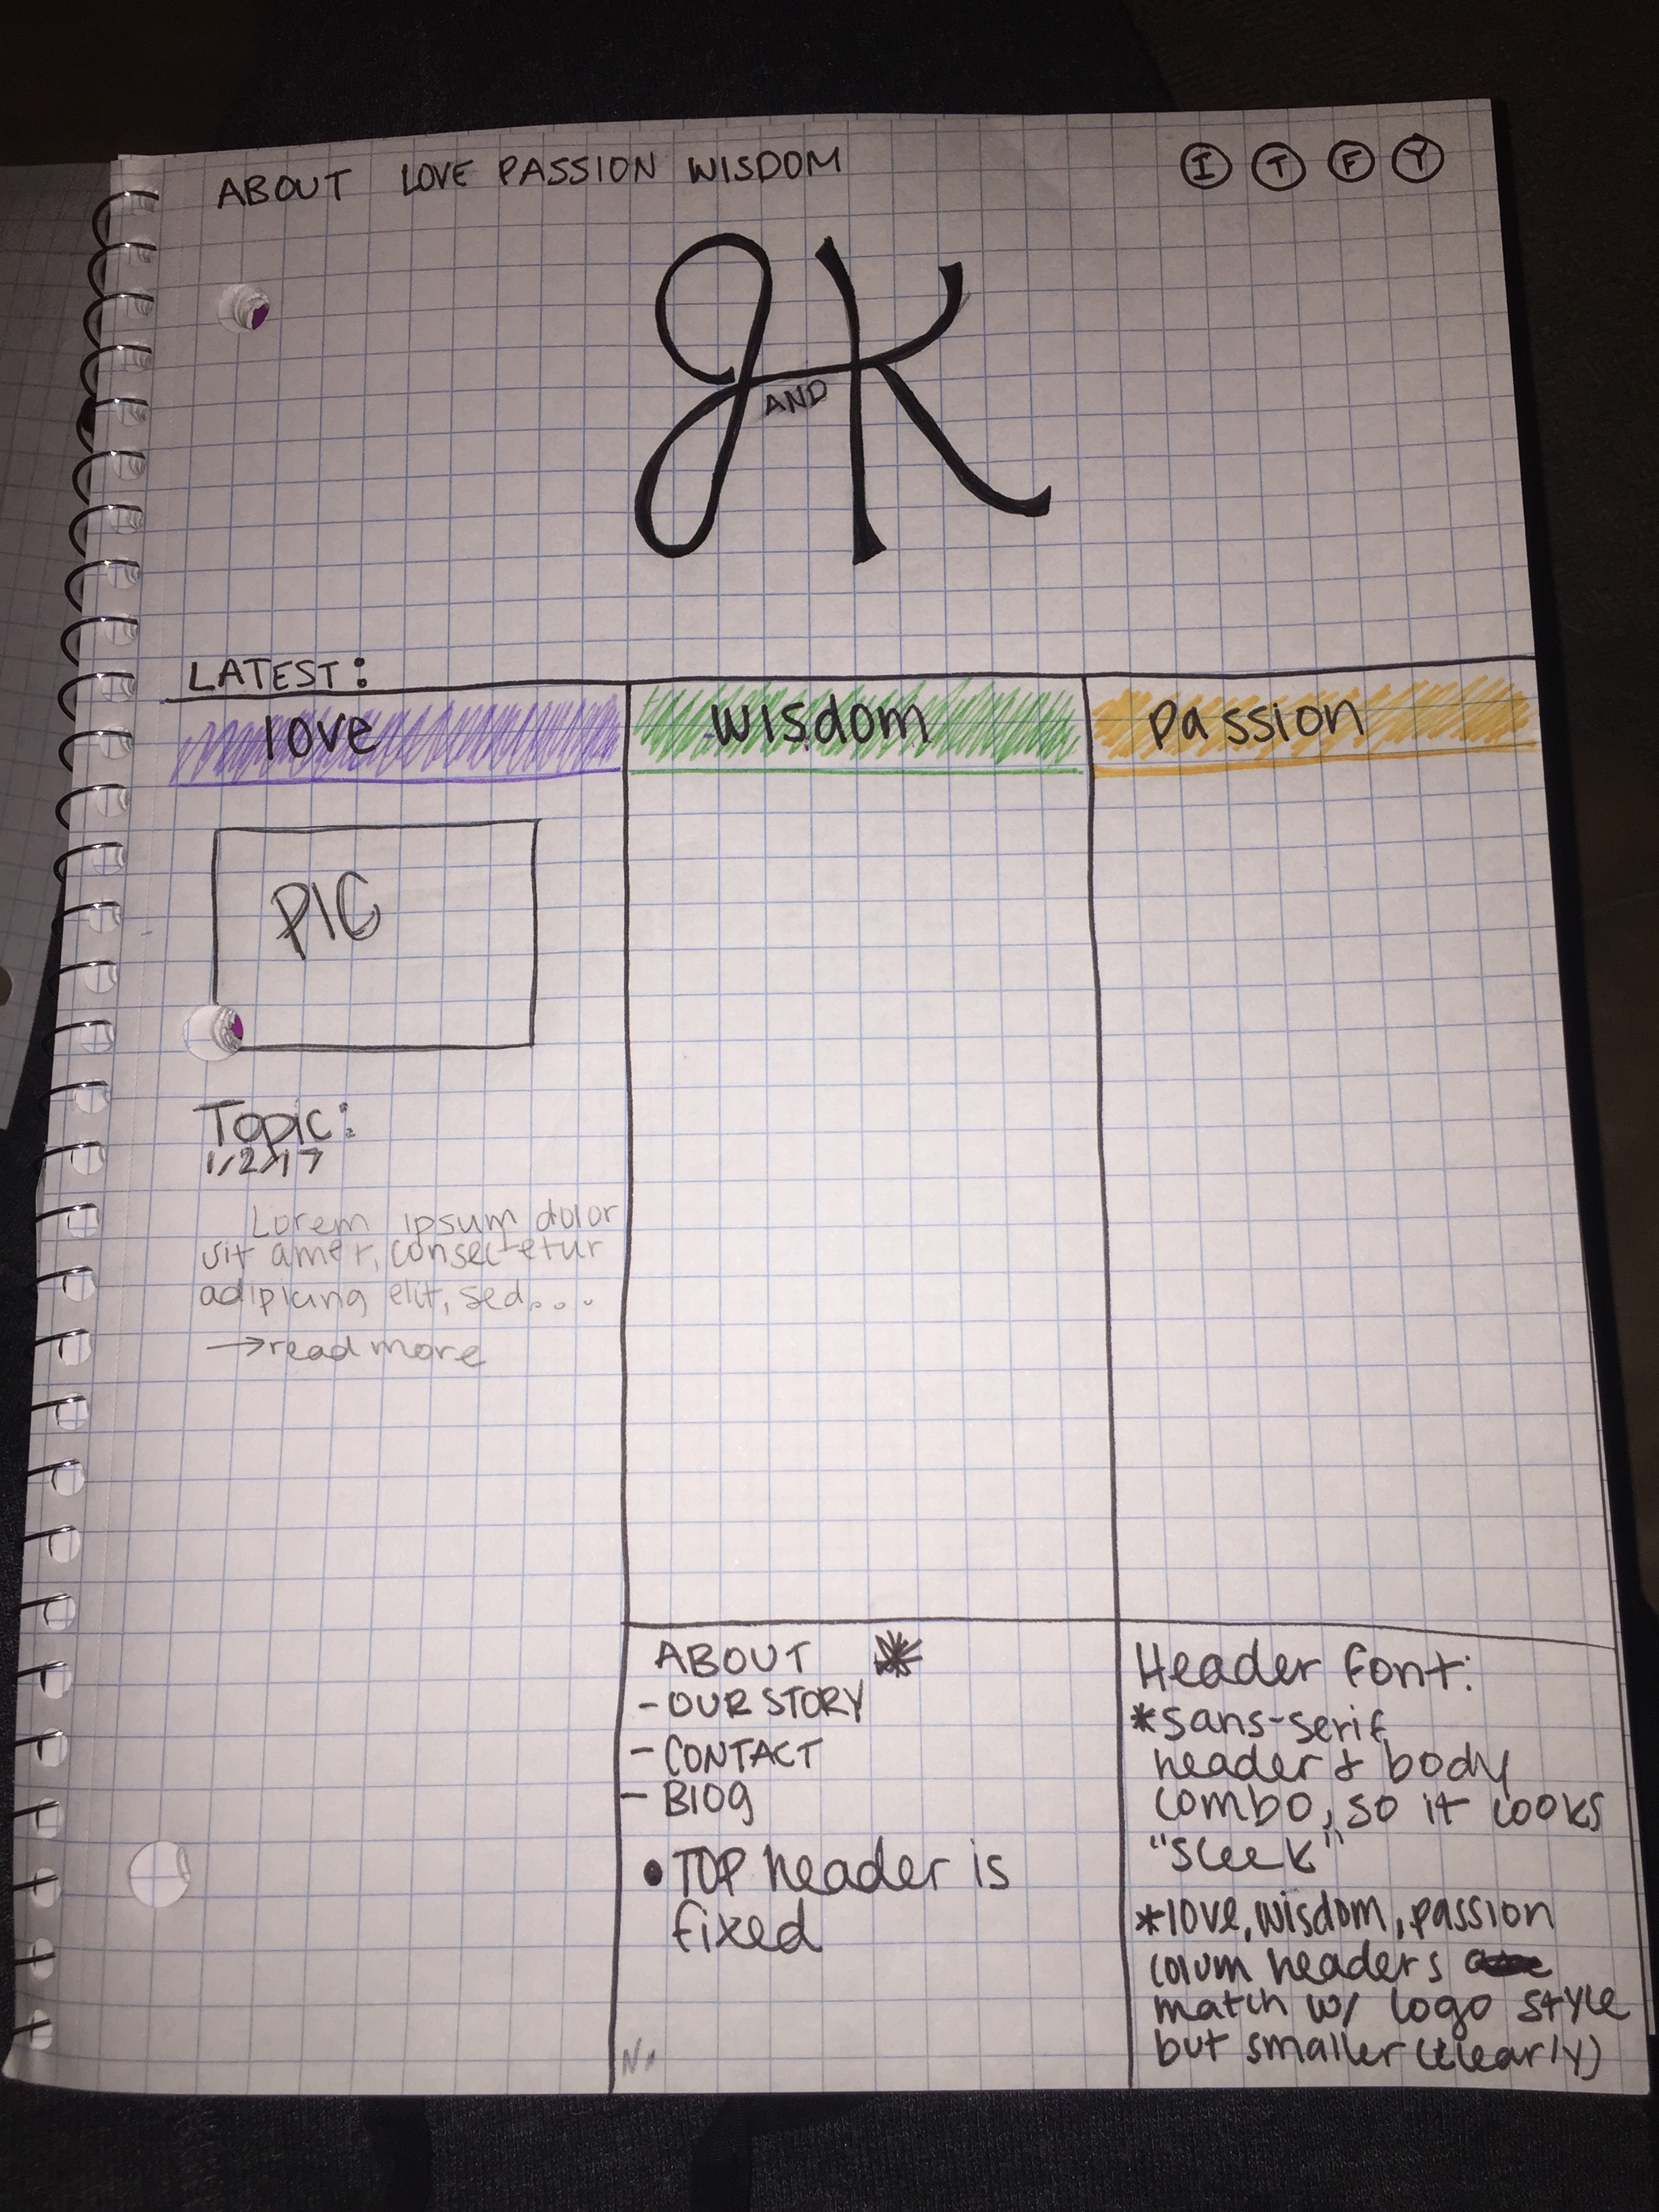 ABOUT LOVE PASSION WISDOM
I T F Y
J AND K
LATEST:
love
wisdom
passion
PIC
Topic:
1/2/17
Lorem ipsum dolor
sit amet, consectetur
adipicing elit, sed....
→read more
ABOUT *
- OUR STORY
- CONTACT
- BlOg
• TOP header is
fixed
Header font:
*sans-serif
header & body
combo, so it looks
"sleek"
*love, wisdom, passion
colum headers
match w/ logo style
but smaller (clearly)